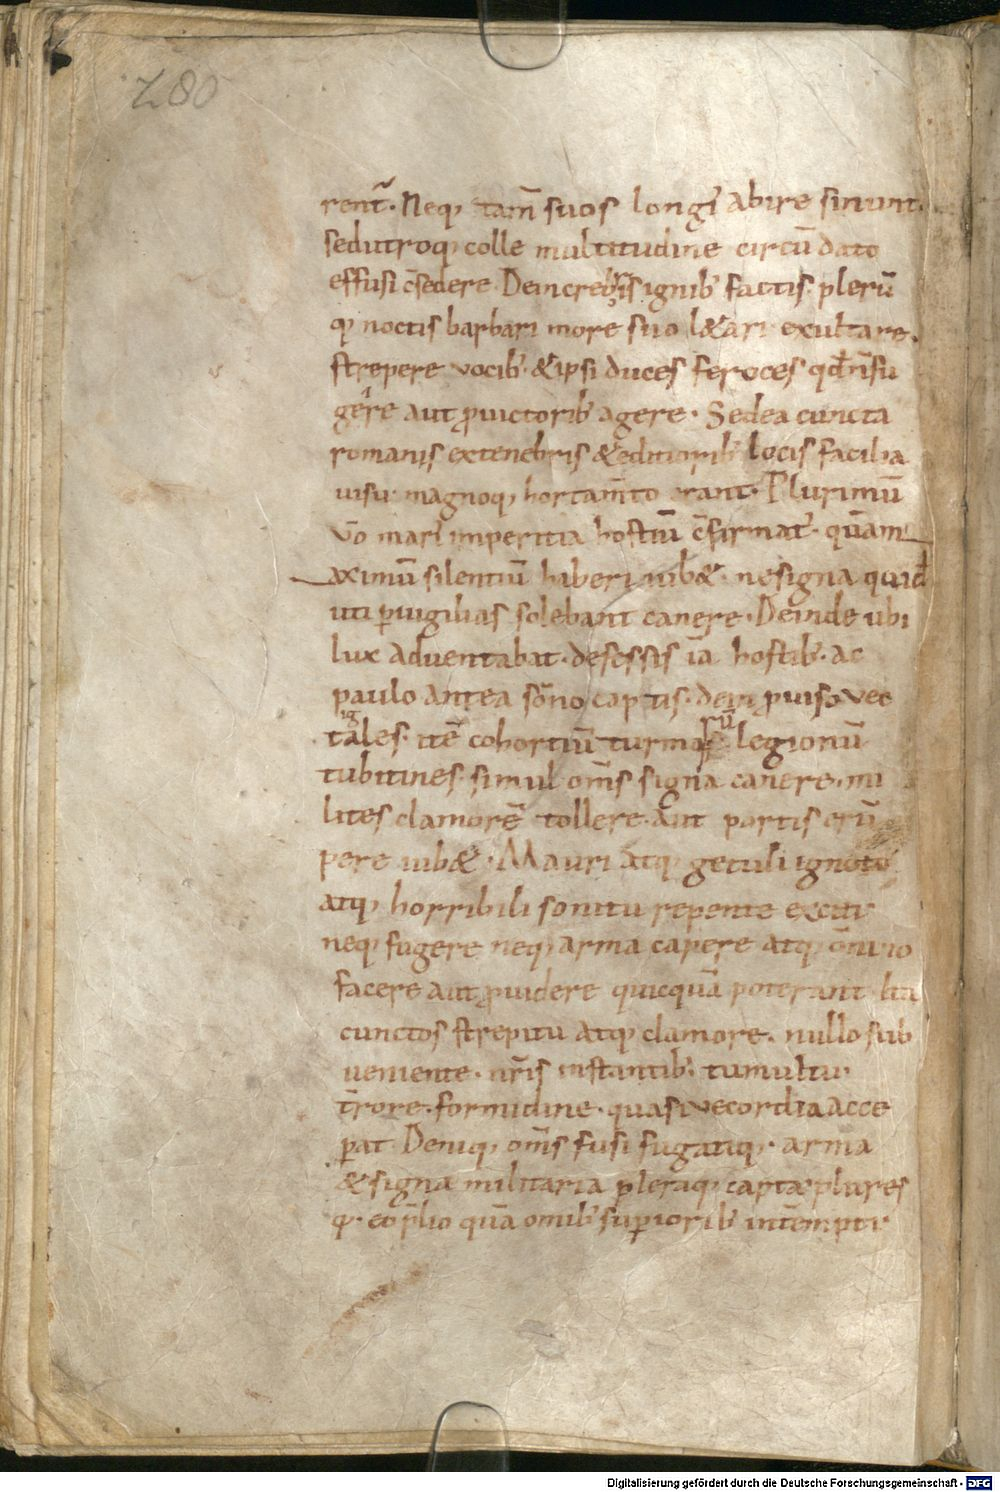 280
rent̄. Neq; tam̄ suos longi abire sinunt.
sedutroq; colle multitudine circū dato
effusi c̄sedere. Deincrebris ignib; factis. plerū
q; noctis barbari more suo l&ari exultare.
strepere vocib; &ipsi duces feroces qđ n̄su
gere aut ꝓuictorib; agere. Sedea cuncta
romanis extenebris &editiorib; locis facilia
uisu magnoq; hortam̄to erant. Plurimū
v̄o mari imperitia hostiū c̄firmat̄. quam
aximū silentiū haberi iub&. nesigna quidē
uti ꝑuigilias solebant canere. Deinde ubi
lux adventabat. defessis iā hostib;. ac
paulo antea sōno captis. deinꝓuiso vec
tigales. itē cohortiū turmarū legionū
tubicines. simul om̄s signa canere. mi
lites clamorē tollere. aut portis erū
pere iub&. Mauri atq; getuli ignoto
atq; horribili sonitu repente exciti
neq; fugere neq; arma capere atq; om̄ino
facere aut ꝓuidere quicquā poterant. Ita
cunctos strepitu atq; clamore. nullo sub
ueniente. nr̄is instantib;. tumultu.
t̄rore. formidine. quasi vecordia acce
ꝑat. Deniq; om̄s fusi fugatiq;. arma
&signa militaria pleraq; captæ plures
q;. eo p̄lio quā omīb; suꝑiorib; int̄empti
Digitalisierung gefördert durch die Deutsche Forschungsgemeinschaft - DFG